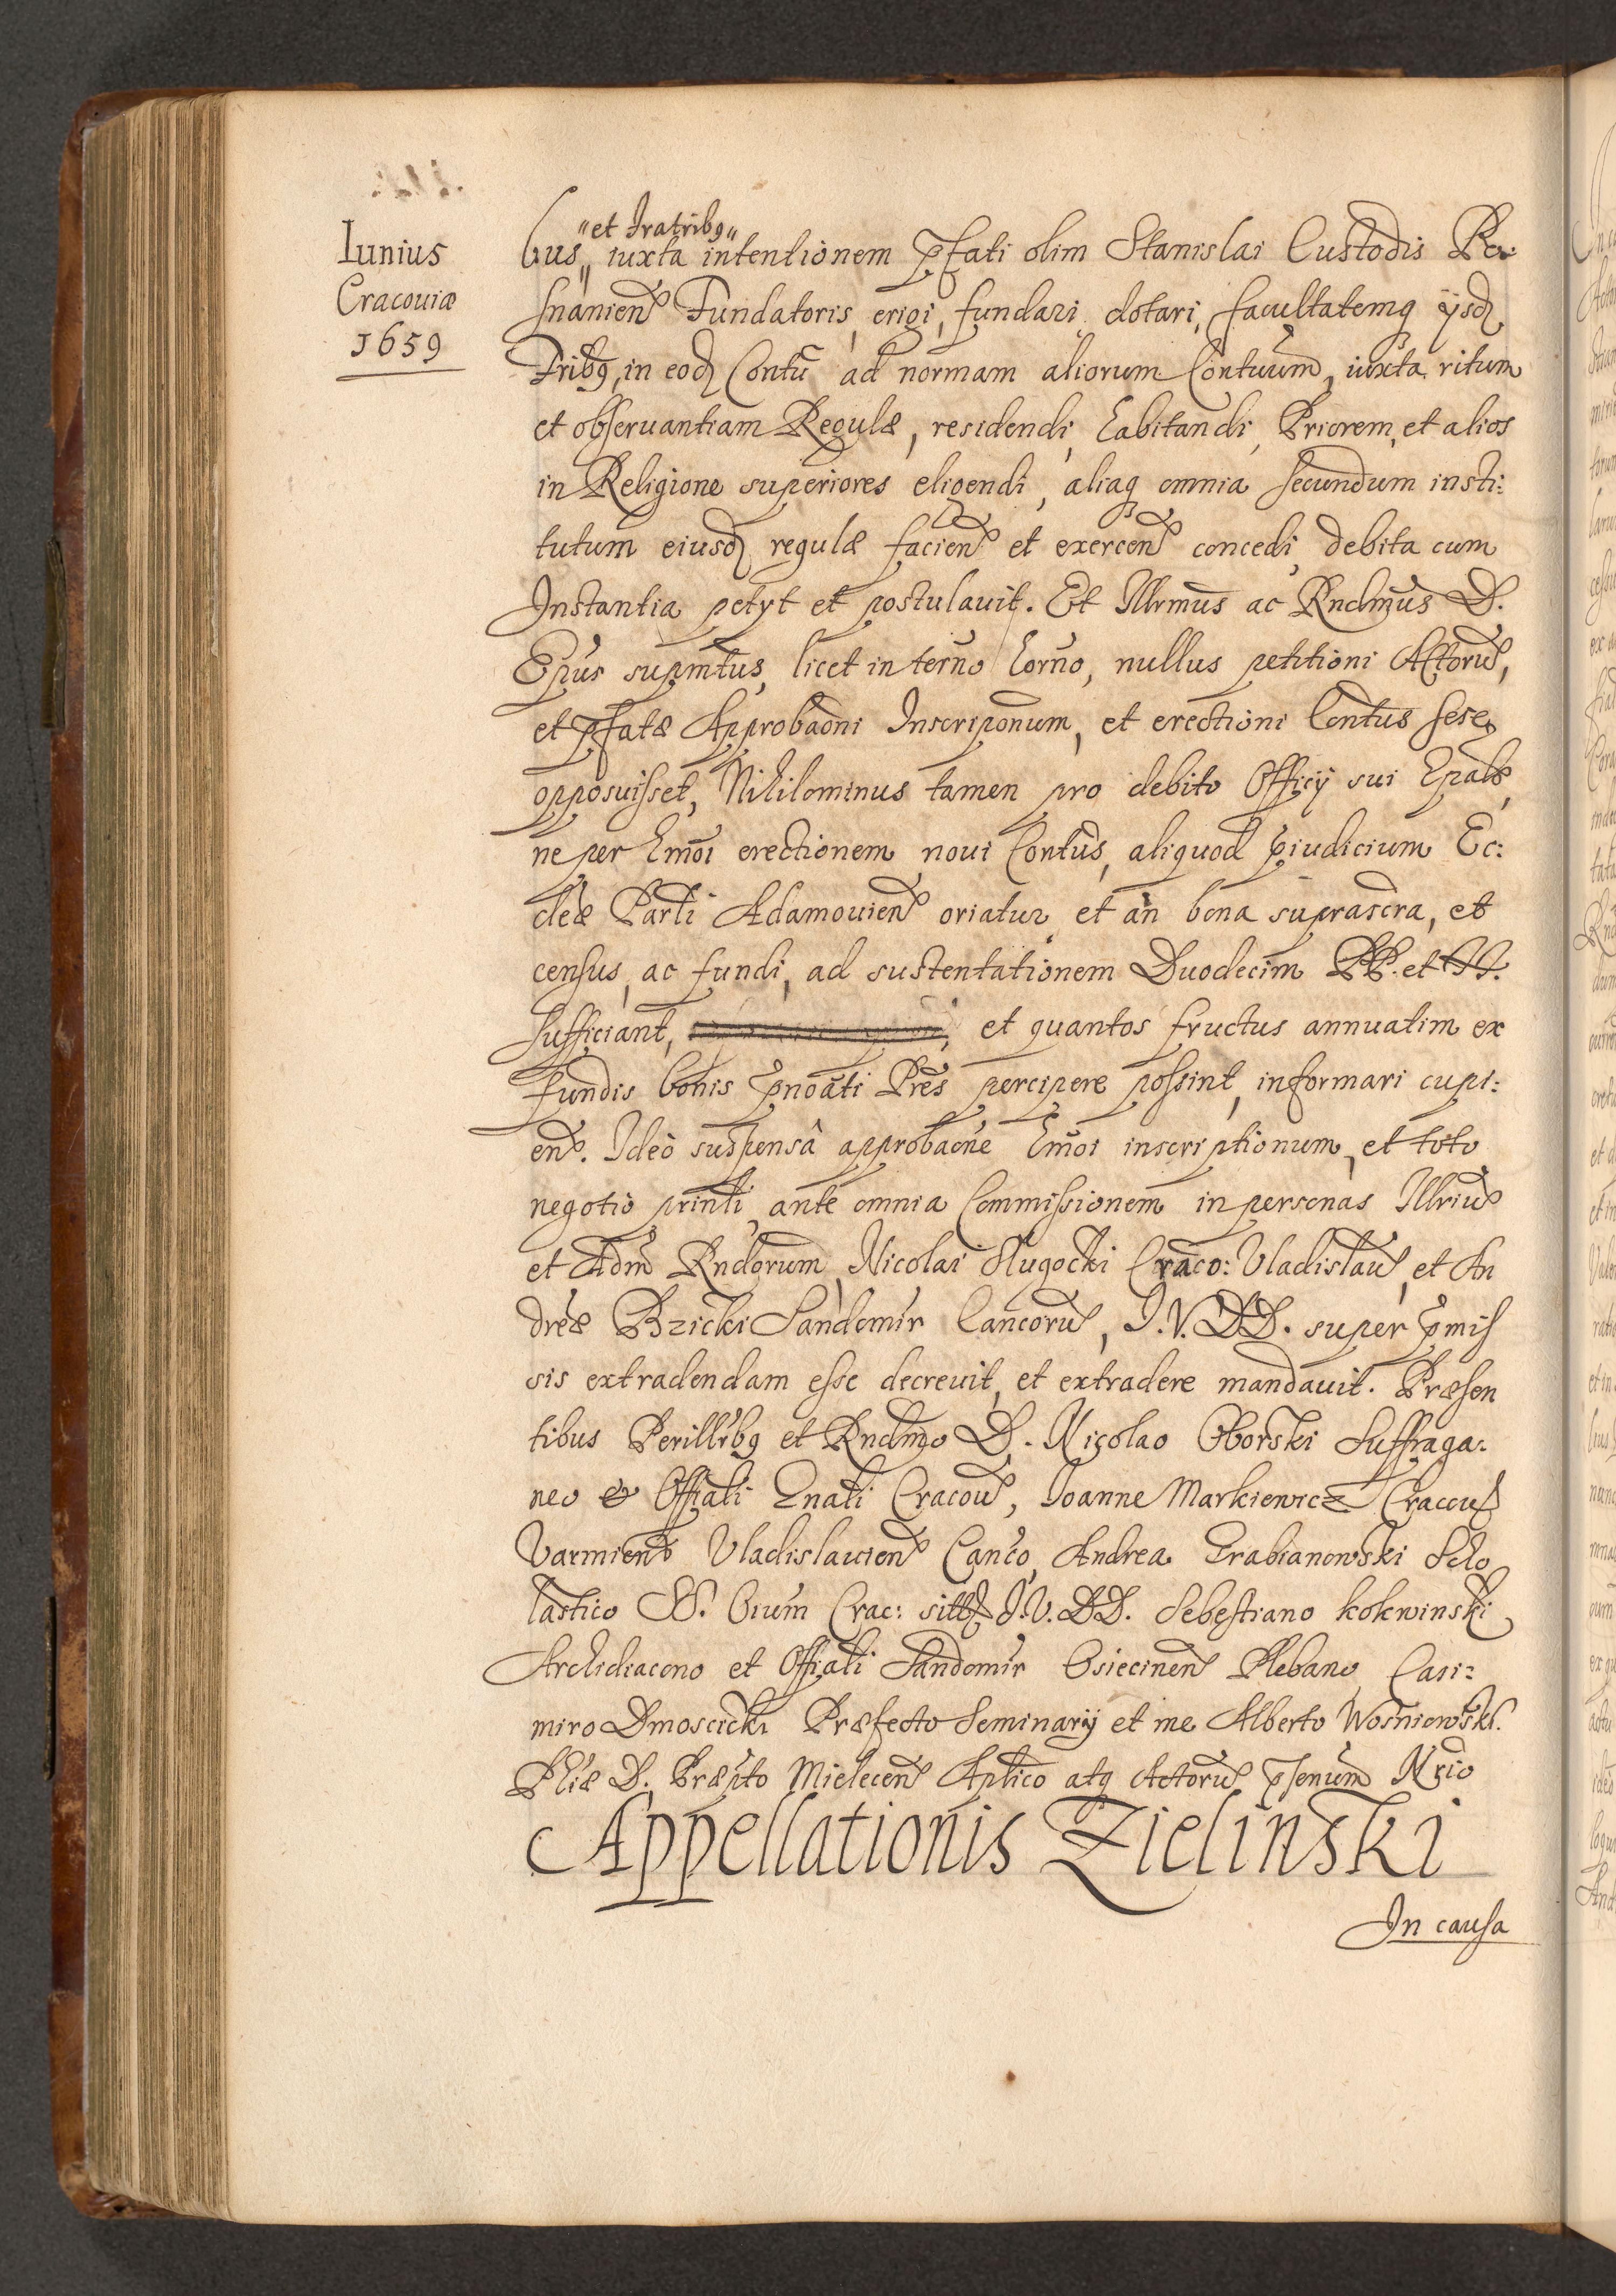 Iunius
Cracouiæ
1659
"et Fratribq"
bus" iuxta intentionem p̄fati olim Stanislai Custodis Po:
snanien Fundatoris, erigi, fundari, dotari, facultatemq ijsd
Fribq, in eod Contũ ad normam aliorum Contuum, iuxta ritum
et obseruantiam Regulæ, residendi, habitandi, Priorem, et alios
in Religione superiores eligendi, aliaq omnia secundum insti:
tutum eiusd regulæ facien et exercen concedi, debita cum
Instantia petyt et postulauit. Et Illrmus ac Rndmus D.
Epus supmtus, licet in termo horno, nullus petitioni Actoru,
et p̄fatæ Approbaoni Inscriponum, et erectioni Contus sese
opposuisset, Nihilominus tamen pro debito Officij sui Epali,
ne per hmoi erectionem noui Contus, aliquod p̄iudicium Ec:
cleæ Parli Adamouien oriatur et an bona suprascra, et
census, ac fundi, ad sustentationem Duodecim PP. et FF.
sufficiant, et quantos fructus annuatim ex
fundis bonis p̄noati Pres percipere possint, informari cupi:
en. Ideo suspensâ approbaone hmoi inscriptionum, et toto
negotio prinli, ante omnia Commissionem in personas Illrium
et Adm Rndorum Nicolai Slugocki Craco: Vladislau, et An
dreæ Brzicki Sandomir Cancoru, I.V.DD. super p̄mis
sis extradendam esse decreuit, et extradere mandauit. Præsen
tibus Perillrbq et Rndmo D. Nicolao Oborski Suffraga:
neo et Offiali Gnali Cracou, Ioanne Markiewicz Cracou
Varmien Vladislauien Canco, Andrea Grabianowski Scho
lastico SS. Oium Crac: I.V.DD. Sebestiano kokwinski
Archidiacono et Offiali Sandomir Osiecinen Plebano, Casi:
miro Dmoscicki Præfecto Seminarij et me Alberto Wosniowski.
Phiæ D. Præpto Mielecen Aplico atq Actoru p̄senum Nrio
Appellationis Zielinski
In causa